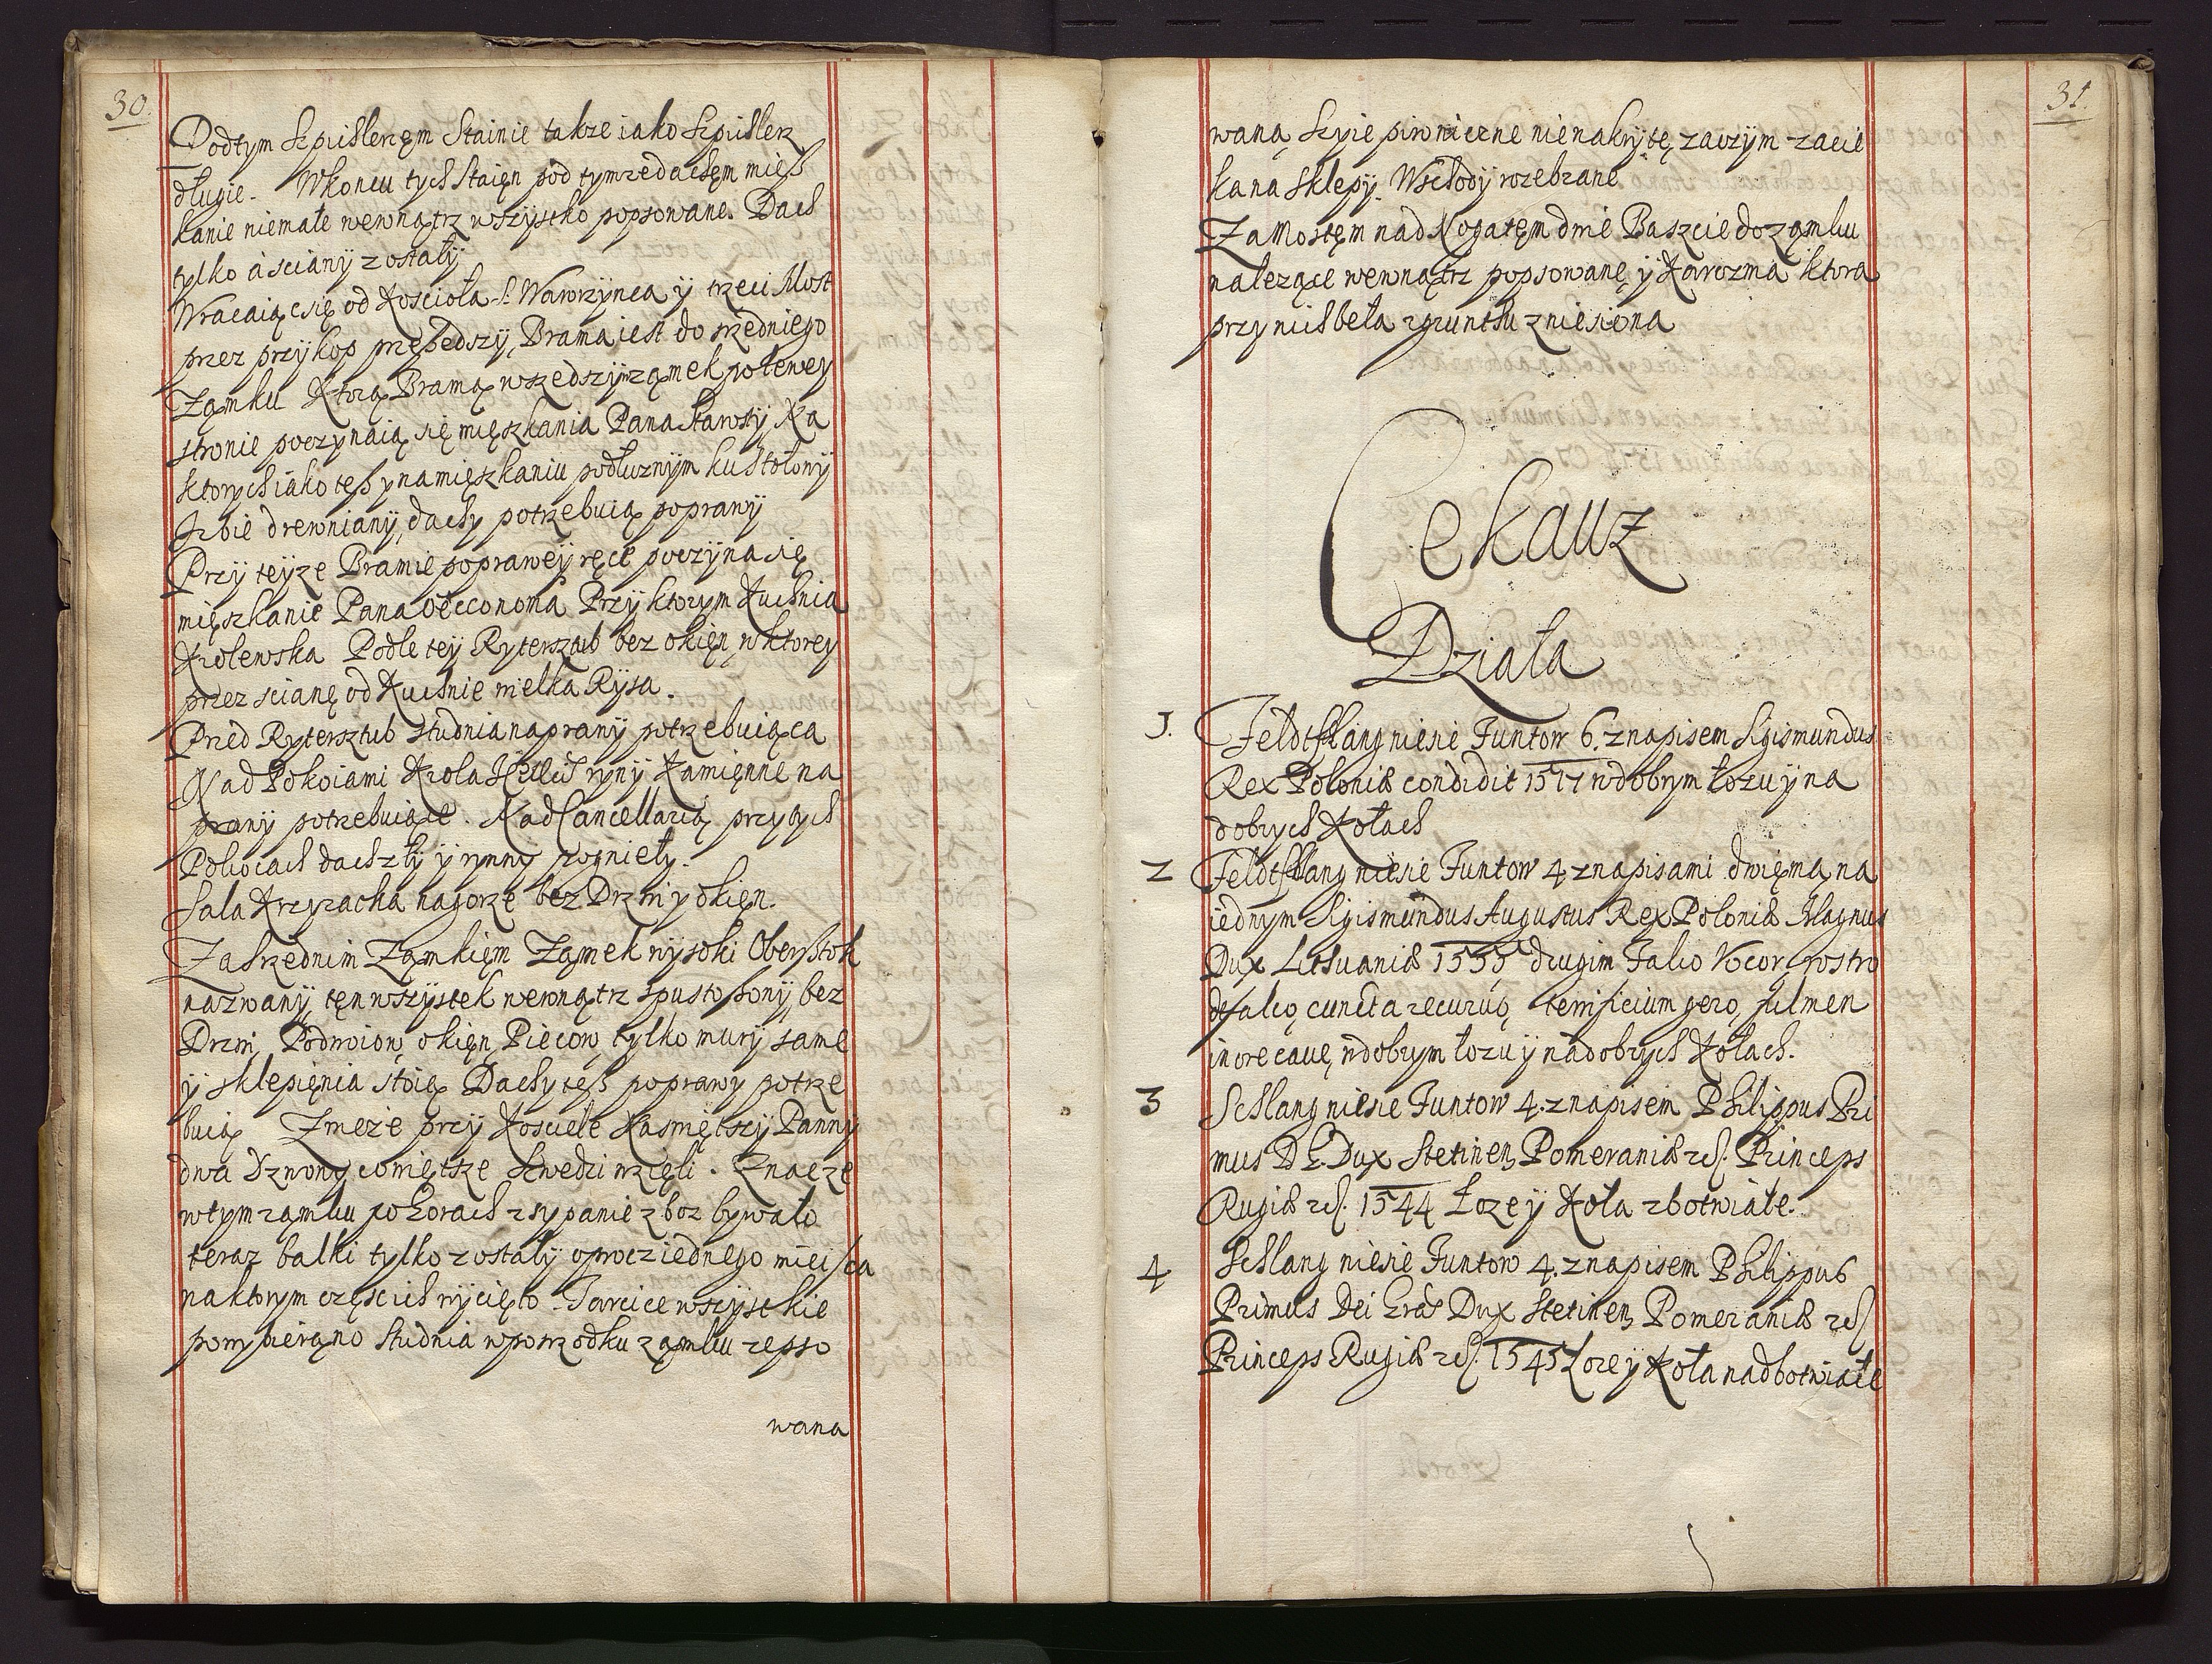 30.
Podtym Szpichlerzęm Stainie takze iako Szpichlerz
długie. Wkoncu tych Staięn pod tymzedachęm mięß
kanie niemałe wewnątrz wszystko popsowane. Dach
tylko a sciany zostały
Wracaiąc się od Kosciola S. Wawrzynca y trzeci Most
przez przykop przebedszy, Brama iest do srzedniego
Zamku Ktorą Bramą wszedszy wzamek po łewey
stronie poczynaią się mięszkania Pana Starosty Na
ktorych iako teß y na mięszkaniu podłuznym ku Stołowy
Izbie drewniany, dachy potrzebuią poprawy
Przy teyze Bramie po prawey ręce poczyna się
mięszkanie Pana Oecconoma Przy ktorym Kuchnia
Krolewska Podle tey Ryterszub bez okięn, w ktorey
przez scianę od Kuchnie wielka Rysa.
Przed Rytersztub studnia naprawy potrzebuiąca
Nad Pokoiami Krola JEMci ryny Kamięnne na
prawy potrzebuiące. Nad Cancellarią przy tych
Pokoiach dach zły y rynny pogniely.
Sala Krzyzacka na gorze bez Drzwi y okięn.
Za Srzednim Zamkięm Zamek wysoki Oberßtok
nazwany, tęn wszystek wewnątrz spustoßony, bez
Drzwi, Podwoiow, okięn, Piecow, tylko mury same
y sklepięnia stoią Dachy teß poprawy potrze
buią Zwieże przy Kosciele Naswiętszy Panny
dwa Dzwony co więtsze Szwedzi wzięli. Znacze
wtym zamku po Gorach zsypanie zboz bywało
teraz balki tylko zostały oprocz iednego mieisca
na ktorym częsc ich wycięto. Tarcice wszystkie
powybierąno Studnia w posrzodku zamku zepso
wana
31.
waną Szyie piwniczne nie nakryte, zaczym zacie
kana sklepy. Wschody rozebrane
Za Mostęm nad Nogatęm dwie Baszcie do zamku
nalezące wewnątrz popsowanę, y Karczma ktora
przy nich beła z gruntu zniesiona
Cekauz
Działa
1. Feldtschlang niesie Funtow 6. z napisem Sigismundus
Rex Poloniæ condidit 1577 w dobrym łozu y na
dobrych Kołach
2 Feldtschlang niesie Funtow 4 z napisami dwięmą na
iednym Sigismundus Augustus Rex Poloniæ Magnus
Dux Lithuaniæ 1555 drugim Falco Vocor, rostro
defalco, cuncta recurvo, terrificium gero, fulmen
in ore cavę, w dobrym łozu y na dobrych Kołach.
3 Schlang niesie Funtow 4. z napisem Philippus Pri
mus D G. Dux Stetinen, Pomeraniæ etc. Princeps
Rugiæ etc. 1544 Łoze y Koła zbotwiałe.
4 Schlang niesie Funtow 4. z napisem Philippus
Primus Dei Gra Dux Stetinen, Pomeraniæ etc
Princeps Rugiæ etc. 1545 Łoze y Koła nadbotwiałe